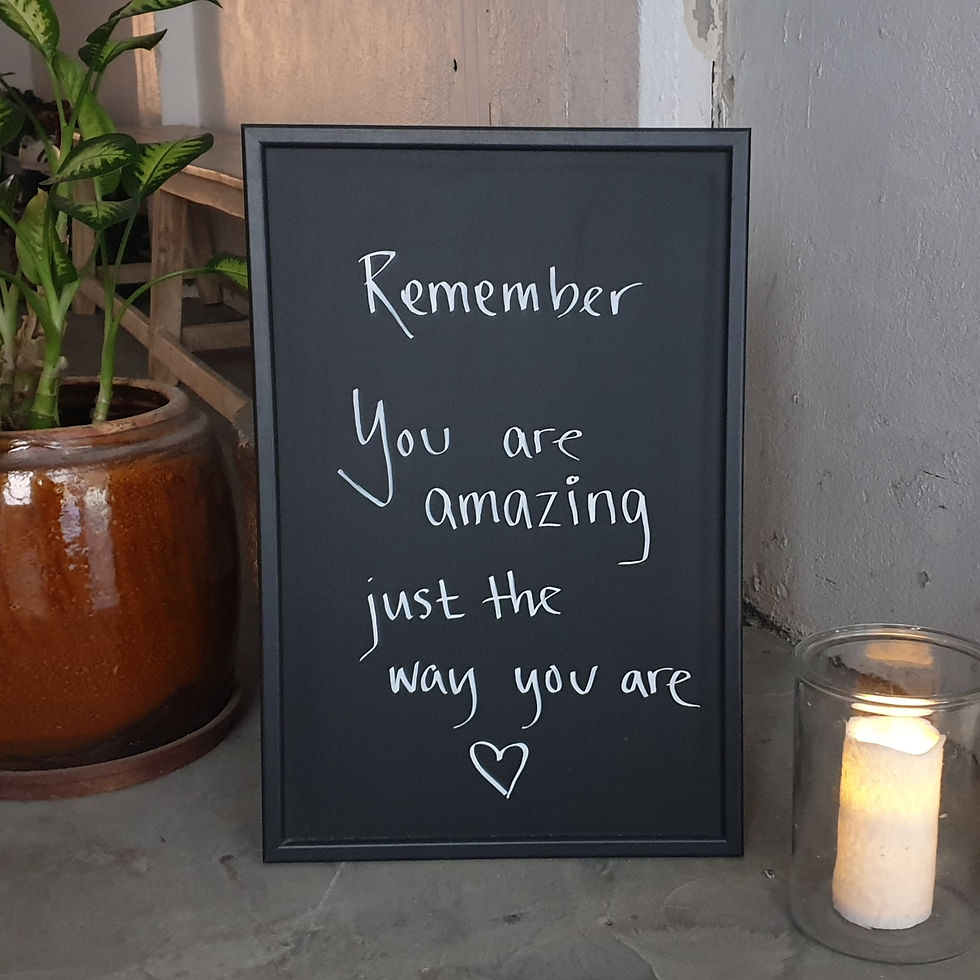 Remember
You are
amazing
just the
way you are